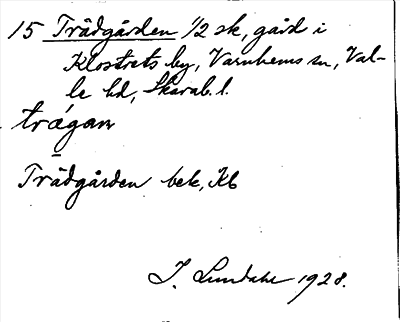 15 Trädgården 1/2 sk, gård i
Klostrets by, Varnhems sn, Val-
le hd, Skarab. l.
trágan
Trädgården bek, Kb
I. Lundahl 1928.